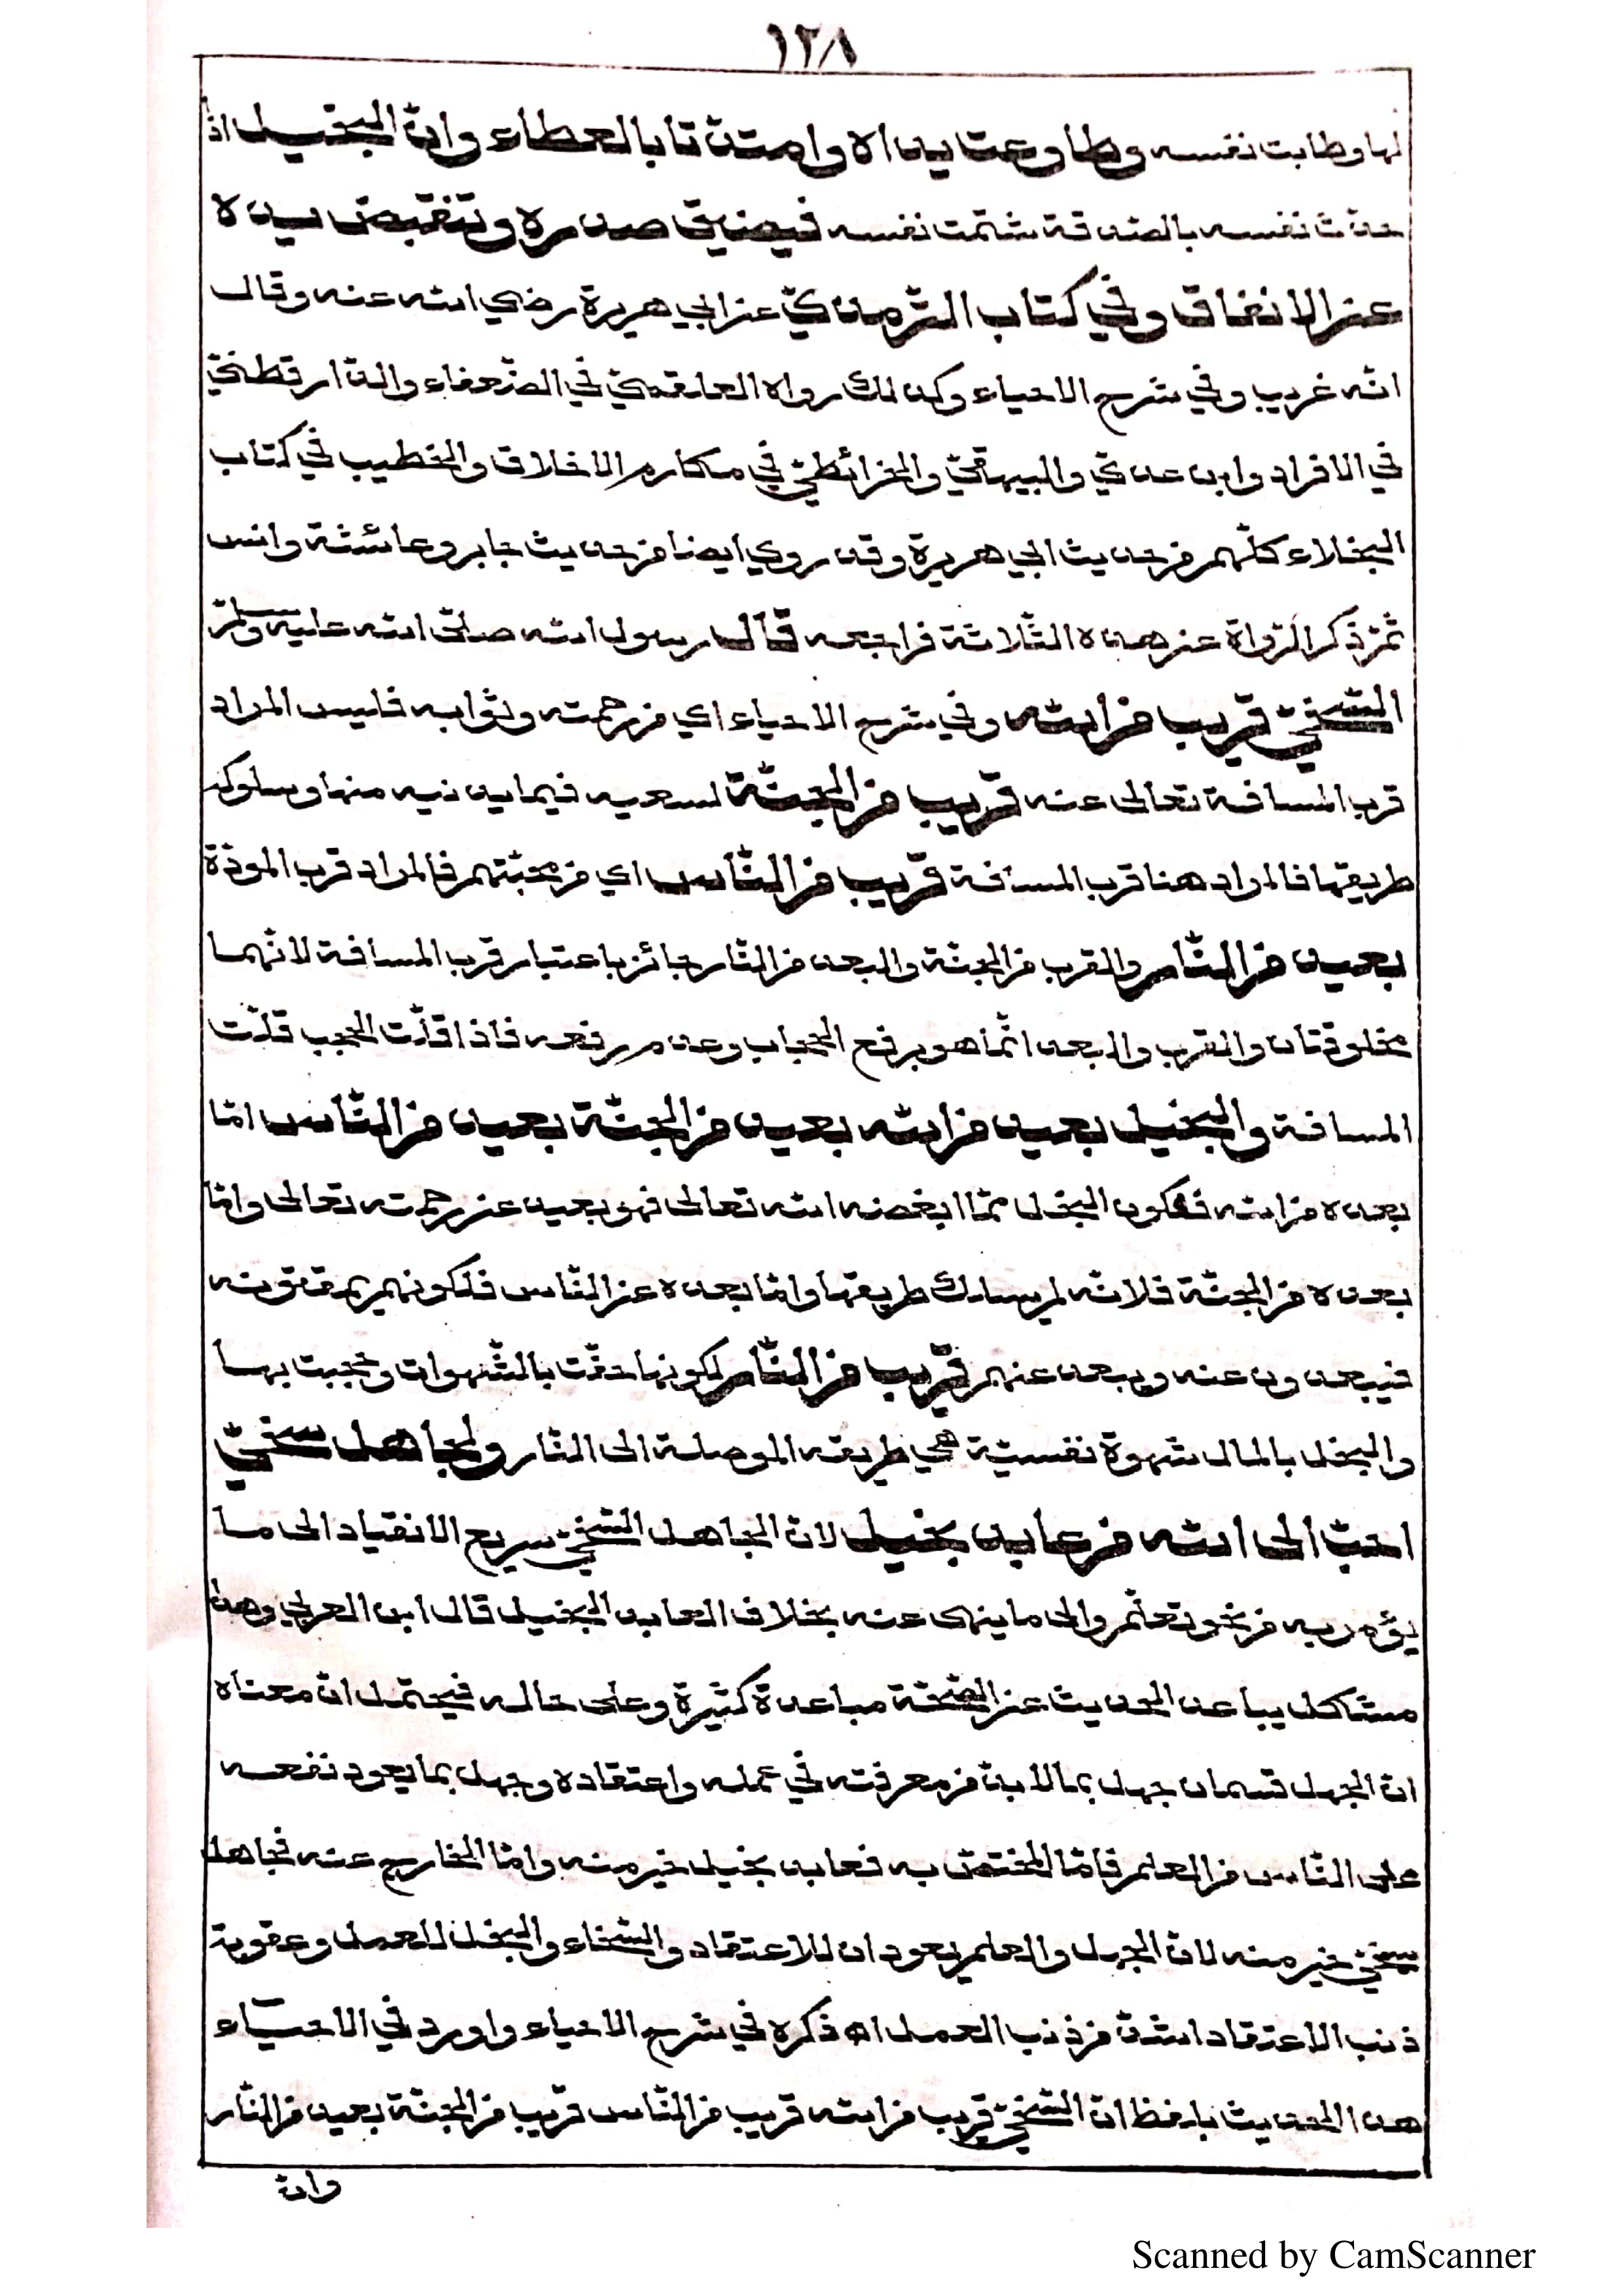 ١٢٨
لها وطابت نفسه وطاوعت يداه وامتدّتا بالعطاء وانّ البخيل اذا
حدّث نفسه بالصّدقة شحّت نفسه فيضيق صدره وتنقبض يداه
عن الانفاق وفي كتاب التّرمذيّ عن ابي هريرة رضي الله عنه وقال
انّه غريب وفي شرح الاحياء وكذلك رواه العقيليّ في الضّعفاء والدّارقطنيّ
في الافراد وابن عديّ والبيهقيّ والخرائطيّ في مكارم الاخلاق والخطيب في كتاب
البخلاء كلّهم من حديث ابي هريرة وقد روي ايضا من حديث جابر وعائشة وانس
ثمّ ذكر الرّواة عن هذه الثّلاثة فراجعه قال رسول الله صلّى الله عليه وسلّم
السّخيّ قريب من الله وفي شرح الاحياء اي من رحمته وثوابه فليس المراد
قرب المسافة تعالى عنه قريب من الجنّة لسعيه فيما يدنيه منها وسلوكه
طريقها فالمراد هنا قرب المسافة قريب من النّاس اي من محبّتهم فالمراد قرب المودّة
بعيد من النّار والقرب من الجنّة والبعد من النّار جائز باعتبار قرب المسافة لانّهما
مخلوقتان والقرب والبعد انّما هو برفع الحجاب وعدم رفعه فاذا قلّت الحجب قلّت
المسافة والبخيل بعيد من الله بعيد من الجنّة بعيد من النّاس امّا
بعده من الله فلكون البخل ممّا ابغضه الله تعالى فهو بعيد عن رحمته تعالى وامّا
بعده من الجنّة فلانّه لم يسلك طريقها وامّا بعده عن النّاس فلكونهم يمقتونه
فيبعدون عنه ويبعد عنهم قريب من النّار لكونها حفّت بالشّهوات وحجبت بها
والبخل بالمال شهوة نفسيّة هي طريقه الموصلة الى النّار ولجاهل سخيّ
احبّ الى الله من عابد بخيل لانّ الجاهل السّخيّ سريع الانقياد الى ما
يؤمر به من نحو تعلّم والى ما ينهى عنه بخلاف العابد البخيل قال ابن العربي وهذا
مشكل يباعد الحديث عن الصّحّة مباعدة كثيرة وعلى حاله فيحتمل انّ معناه
انّ الجهل قسمان جهل بما لا بدّ من معرفته في عمله واعتقاده وجهل بما يعود نفعه
على النّاس من العلم فامّا المختصّ به فعابد بخيل خير منه وامّا الخارج عنه فجاهل
سخيّ خير منه لانّ الجهل والعلم يعودان للاعتقاد والسّخاء والبخل للعمل وعقوبة
ذنب الاعتقاد اشدّ من ذنب العمل اه ذكره في شرح الاحياء واورد في الاحياء
هذا الحديث بلفظ انّ السّخيّ قريب من الله قريب من النّاس قريب من الجنّة بعيد من النّار
وانّ
Scanned by CamScanner